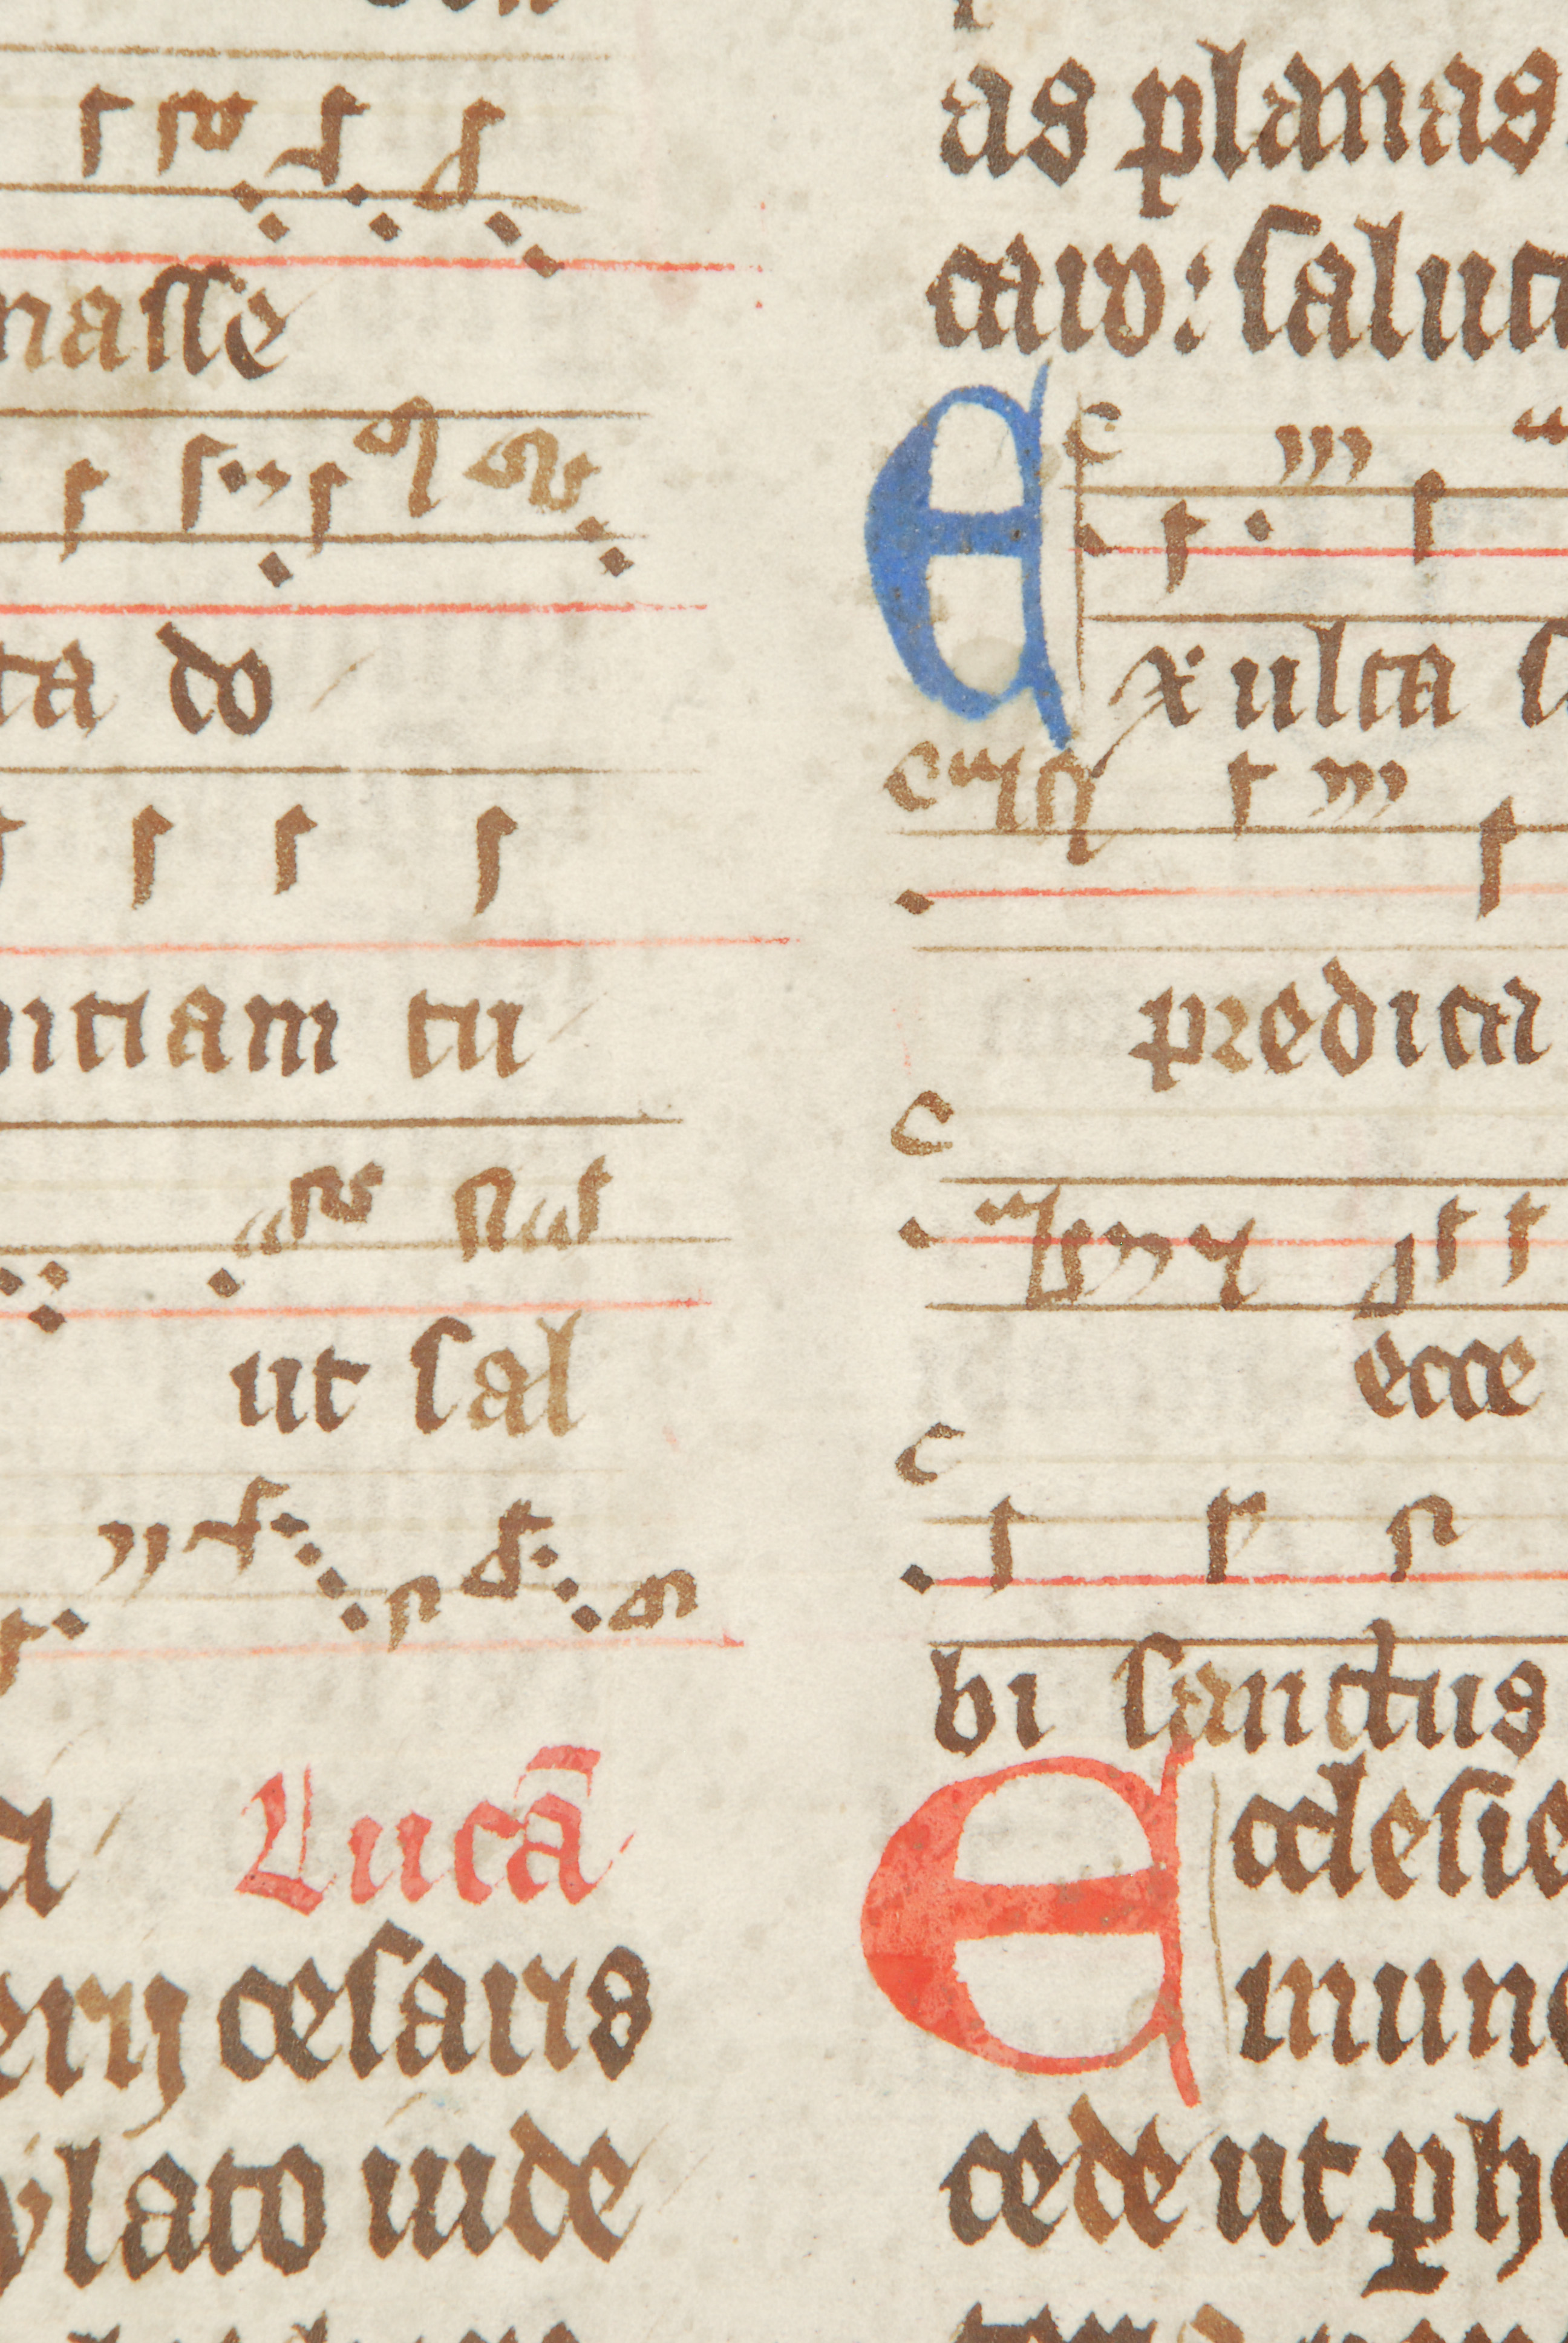 nasse
ta do
nitiam tu
ut sal
Lucā
erij cesaris
ylato iude
as planas.
saluta
Exulta
predica
ecce
bi sanctus
Ecclesie
mun
cede ut ph